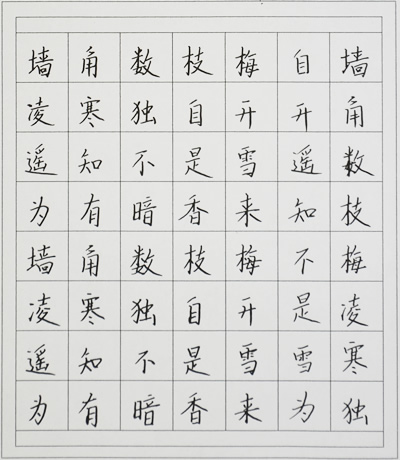 墙角数枝梅自墙
凌寒独自开开角
遥知不是雪遥数
为有暗香来知枝
墙角数枝梅不梅
凌寒独自开是凌
遥知不是雪雪寒
为有暗香来为独